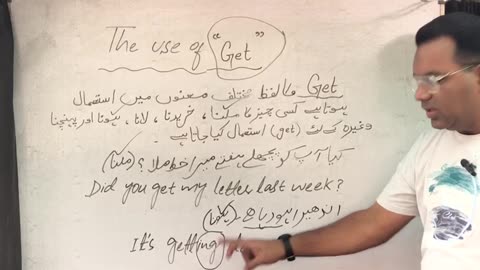 The use of "Get"
Get کا لفظ مختلف معنوں میں استعمال
ہوتا ہے کسی چیز کا ملنا، خریدنا، لانا، ہونا اور پہنچنا
وغیرہ کے لئے (get) استعمال کیا جاتا ہے۔
کیا آپ کو پچھلے ہفتے میرا خط ملا؟ (ملنا)
Did you get my letter last week?
اندھیرا ہو رہا ہے۔
It's getting